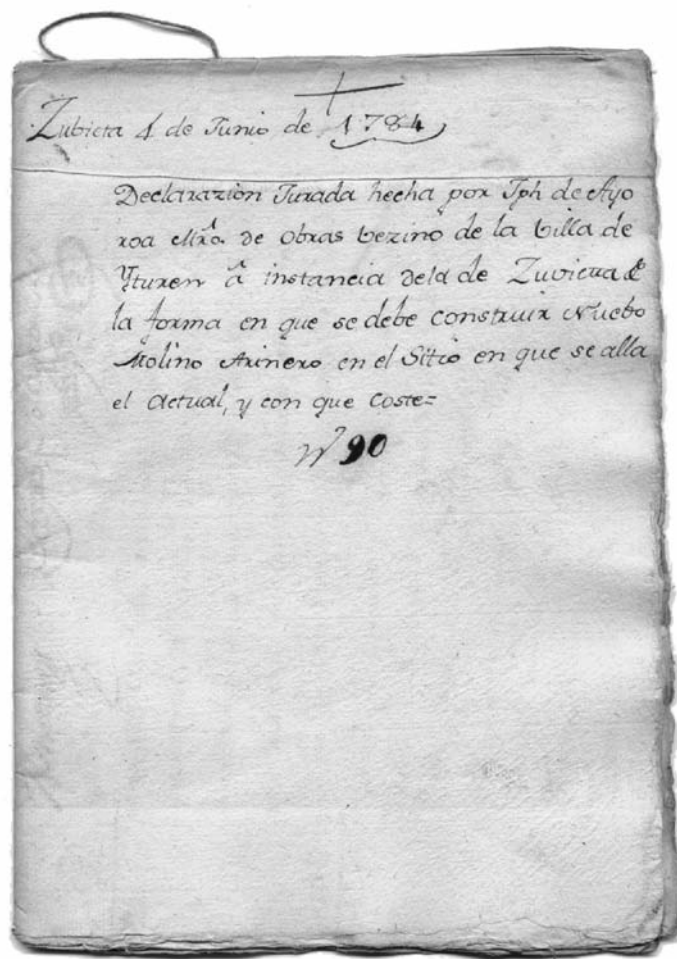 Zubieta 4 de Junio de 1784
Declarazion Jurada hecha por Jph de Ayo
roa Mro. de obras vezino de la villa de
Yturen â instancia dela de Zuvieta &
la forma en que se debe construir Nuebo
Molino Arinero en el Sitio en que se alla
el actual, y con que coste=
Nº 90